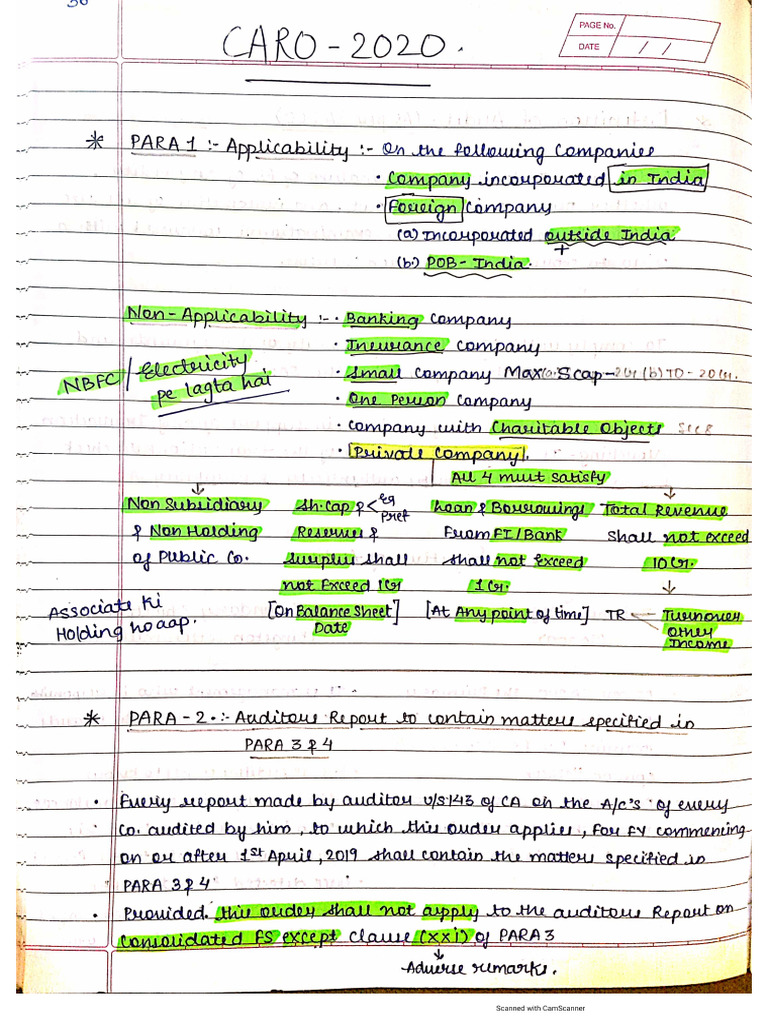 36
CARO - 2020.
PAGE No.
DATE / /
* PARA 1 :- Applicability :- On the following Companies
• Company incorporated in India
• Foreign Company
(a) Incorporated outside India
+
(b) POB - India.
Non - Applicability :- • Banking Company
• Insurance Company
NBFC / Electricity pe lagta hai
• Small Company Max (a) S cap - 2Cr (b) TO - 20Cr.
• One Person Company
• Company with Charitable Objects Sec 8
• Private Company.
All 4 must satisfy
Non Subsidiary & Non Holding of Public Co.
Sh. Cap & < Eq Pref
Reserves & Surplus shall not Exceed 1Cr
[On Balance Sheet] Date
Loan & Borrowings From FI/Bank shall not Exceed 1 Cr.
[At Any point of time]
Total Revenue shall not exceed 10 Cr.
TR Turnover Other Income
Associate ki Holding ho aap.
* PARA - 2 . :- Auditors Report to contain matters specified in
PARA 3 & 4
• Every report made by auditor u/s 143 of CA on the A/c's of every
Co. audited by him, to which this order applies, for FY commencing
on or after 1st April, 2019 shall contain the matters specified in
PARA 3 & 4
• Provided. this order shall not apply to the auditors Report on
Consolidated FS except clause (xxi) of PARA 3
Adverse remarks.
Scanned with CamScanner